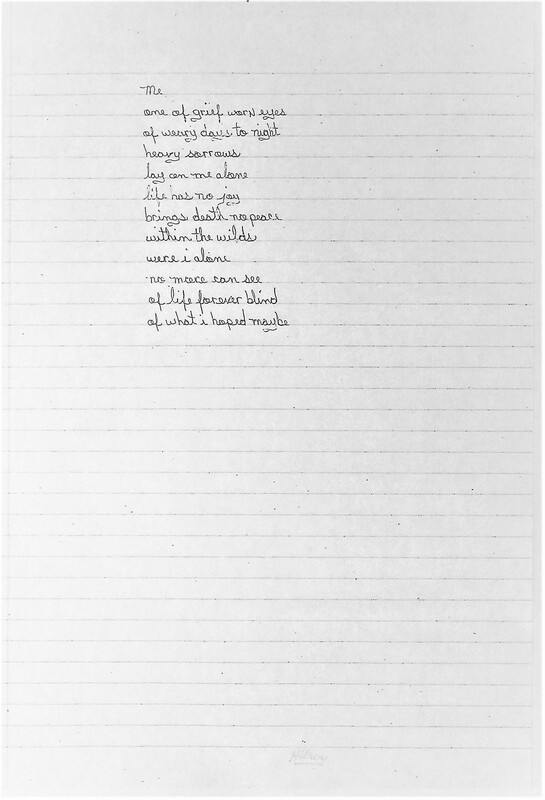 Me
one of grief worn eyes
of weary days to night
heavy sorrows
lay on me alone
life has no joy
brings death no peace
within the wilds
were i alone
no more can see
of life forever blind
of what i hoped maybe
Hilroy